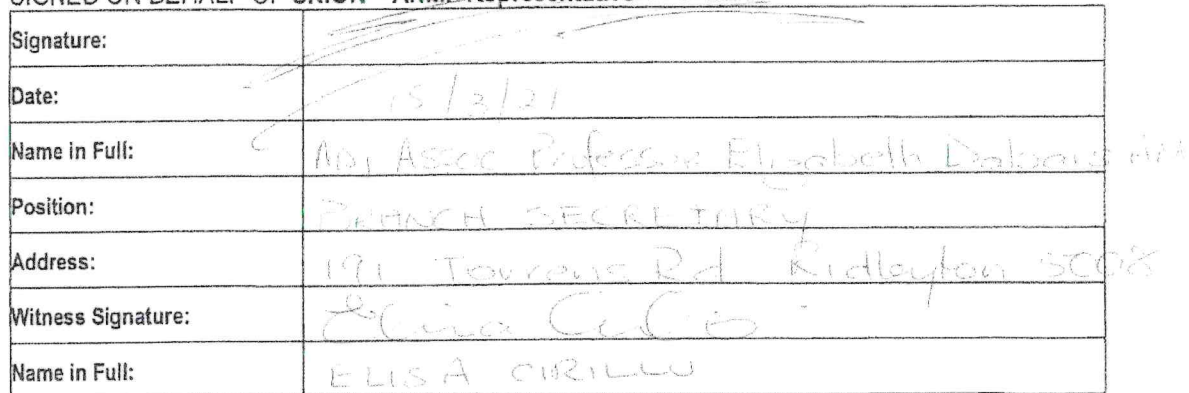 SIGNED ON BEHALF OF UNION – ANMF Representative
Signature:
Date: 15/3/21
Name in Full: ADJ Assoc Professor Elizabeth Dabars AM
Position: BRANCH SECRETARY
Address: 191 Torrens Rd Ridleyton 5008
Witness Signature:
Name in Full: ELISA CIRILLO